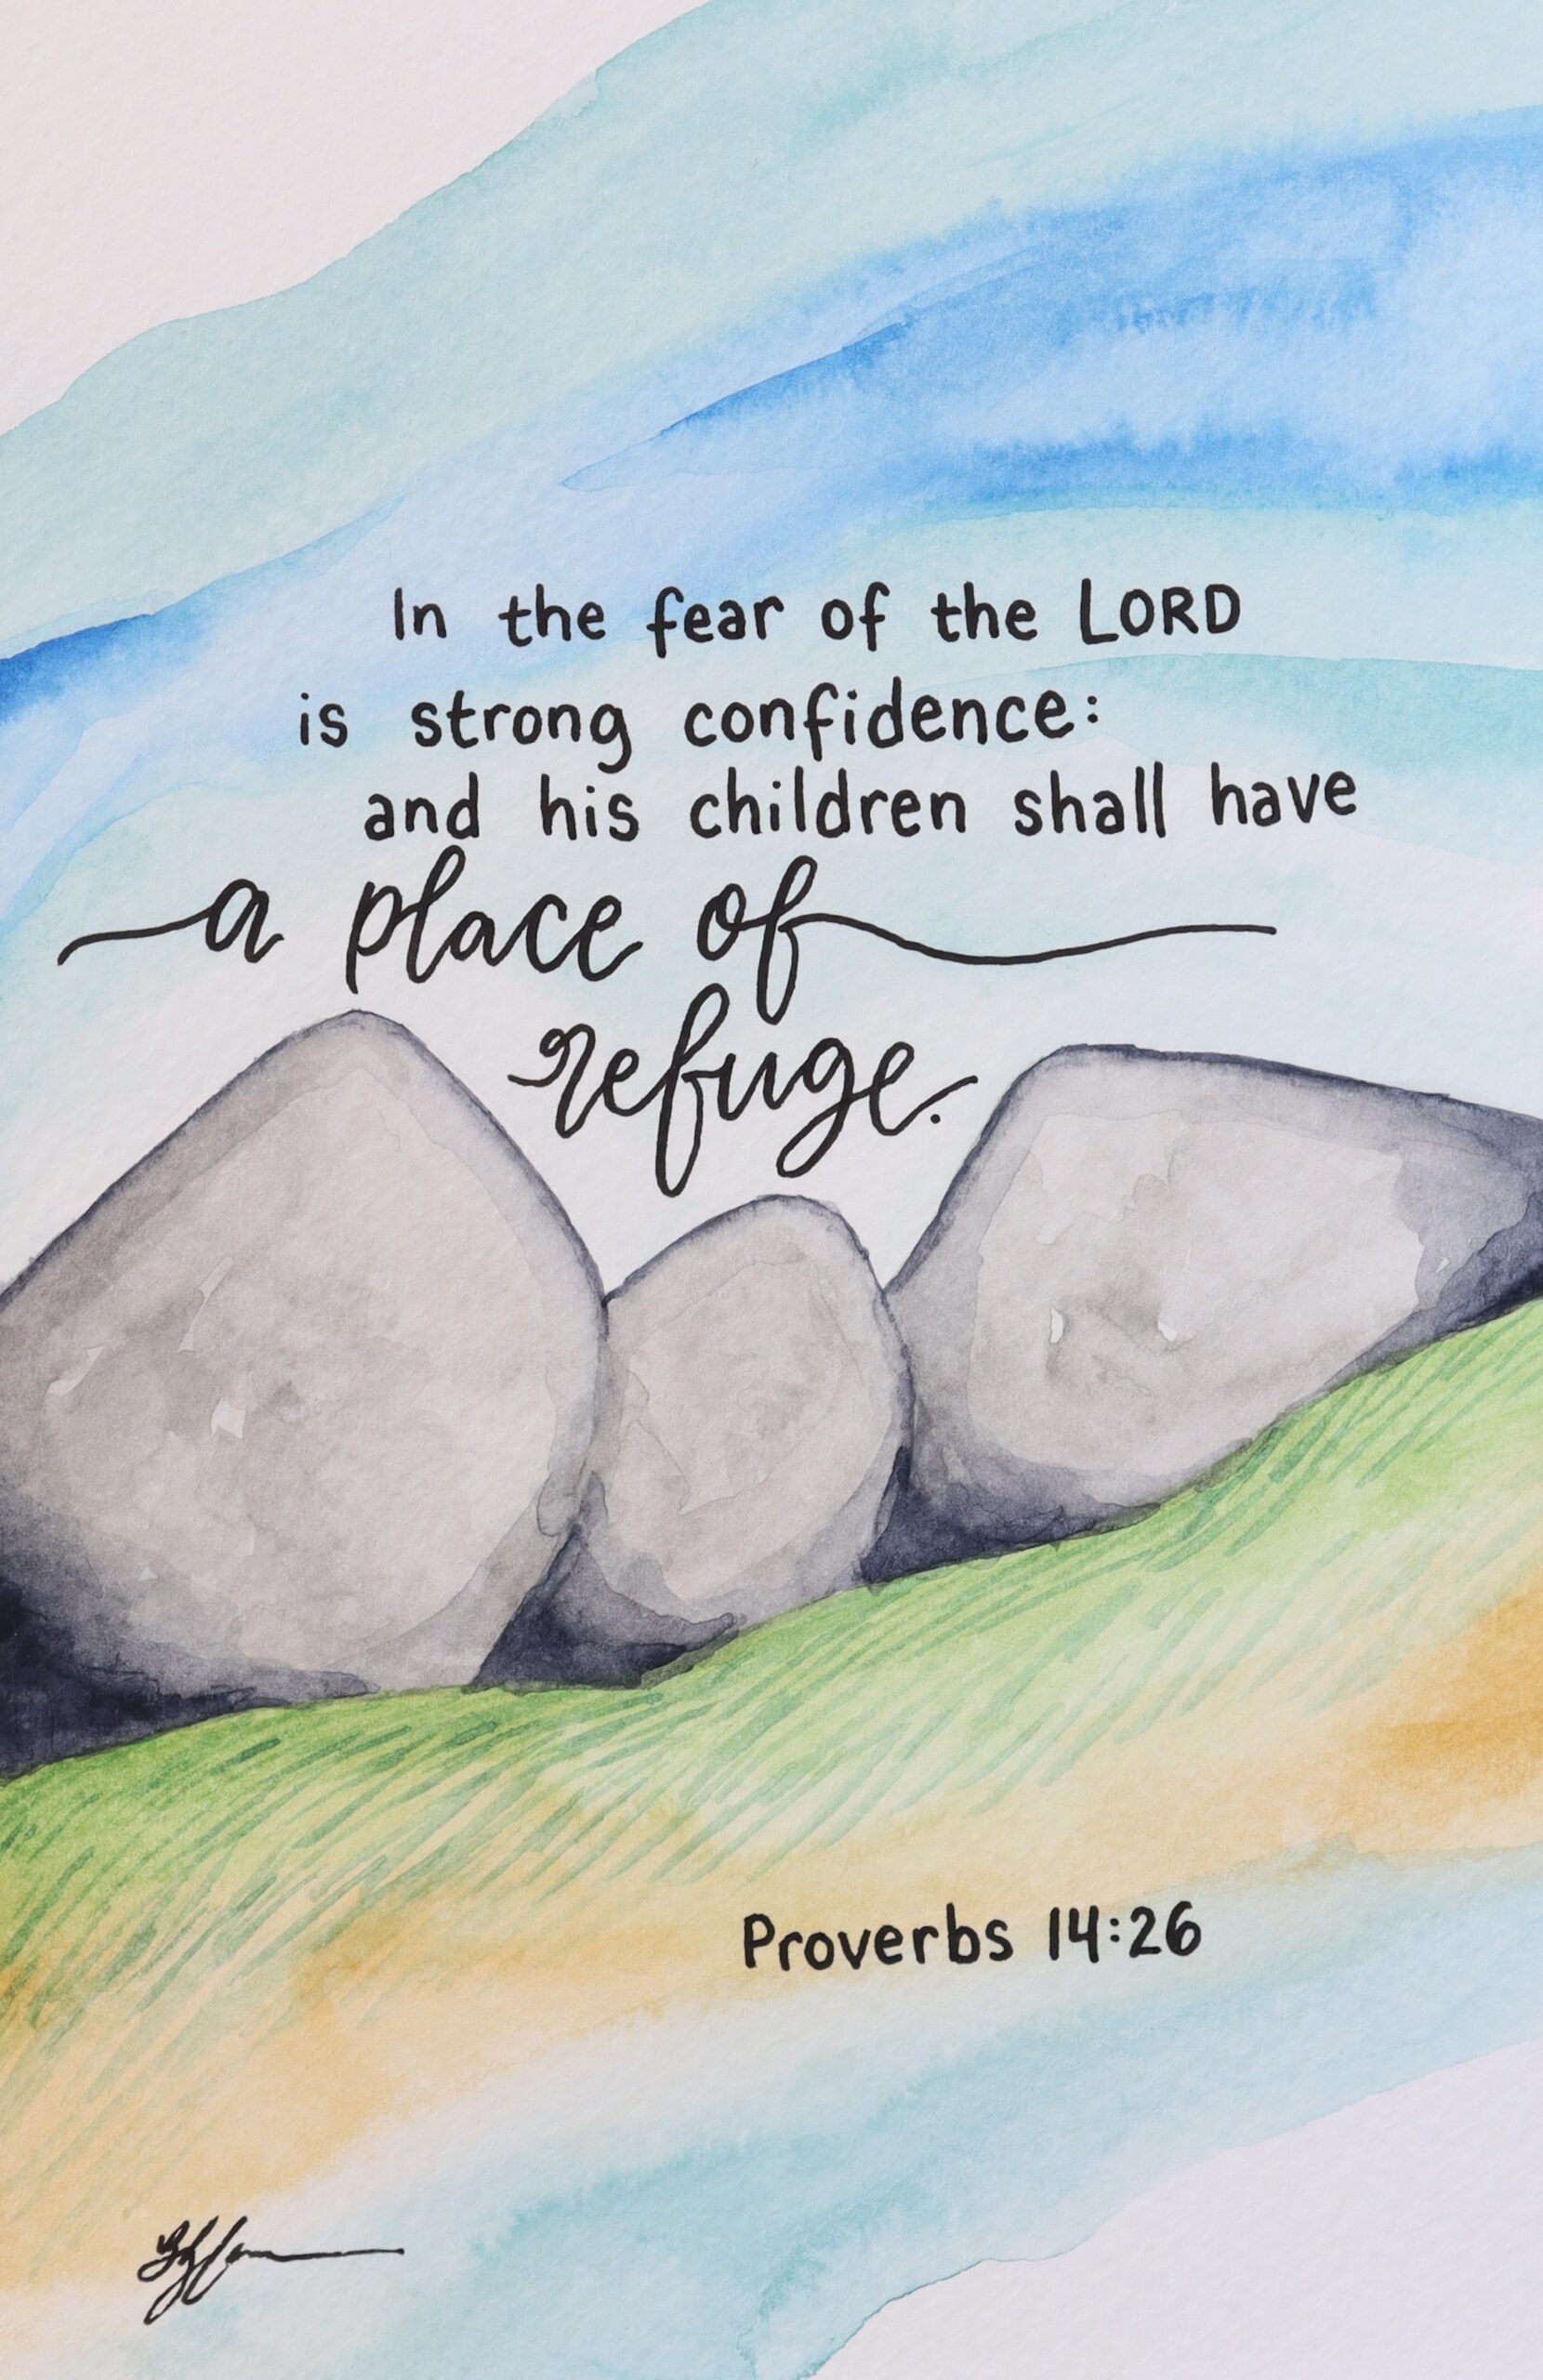 In the fear of the LORD
is strong confidence:
and his children shall have
a place of
refuge.
Proverbs 14:26